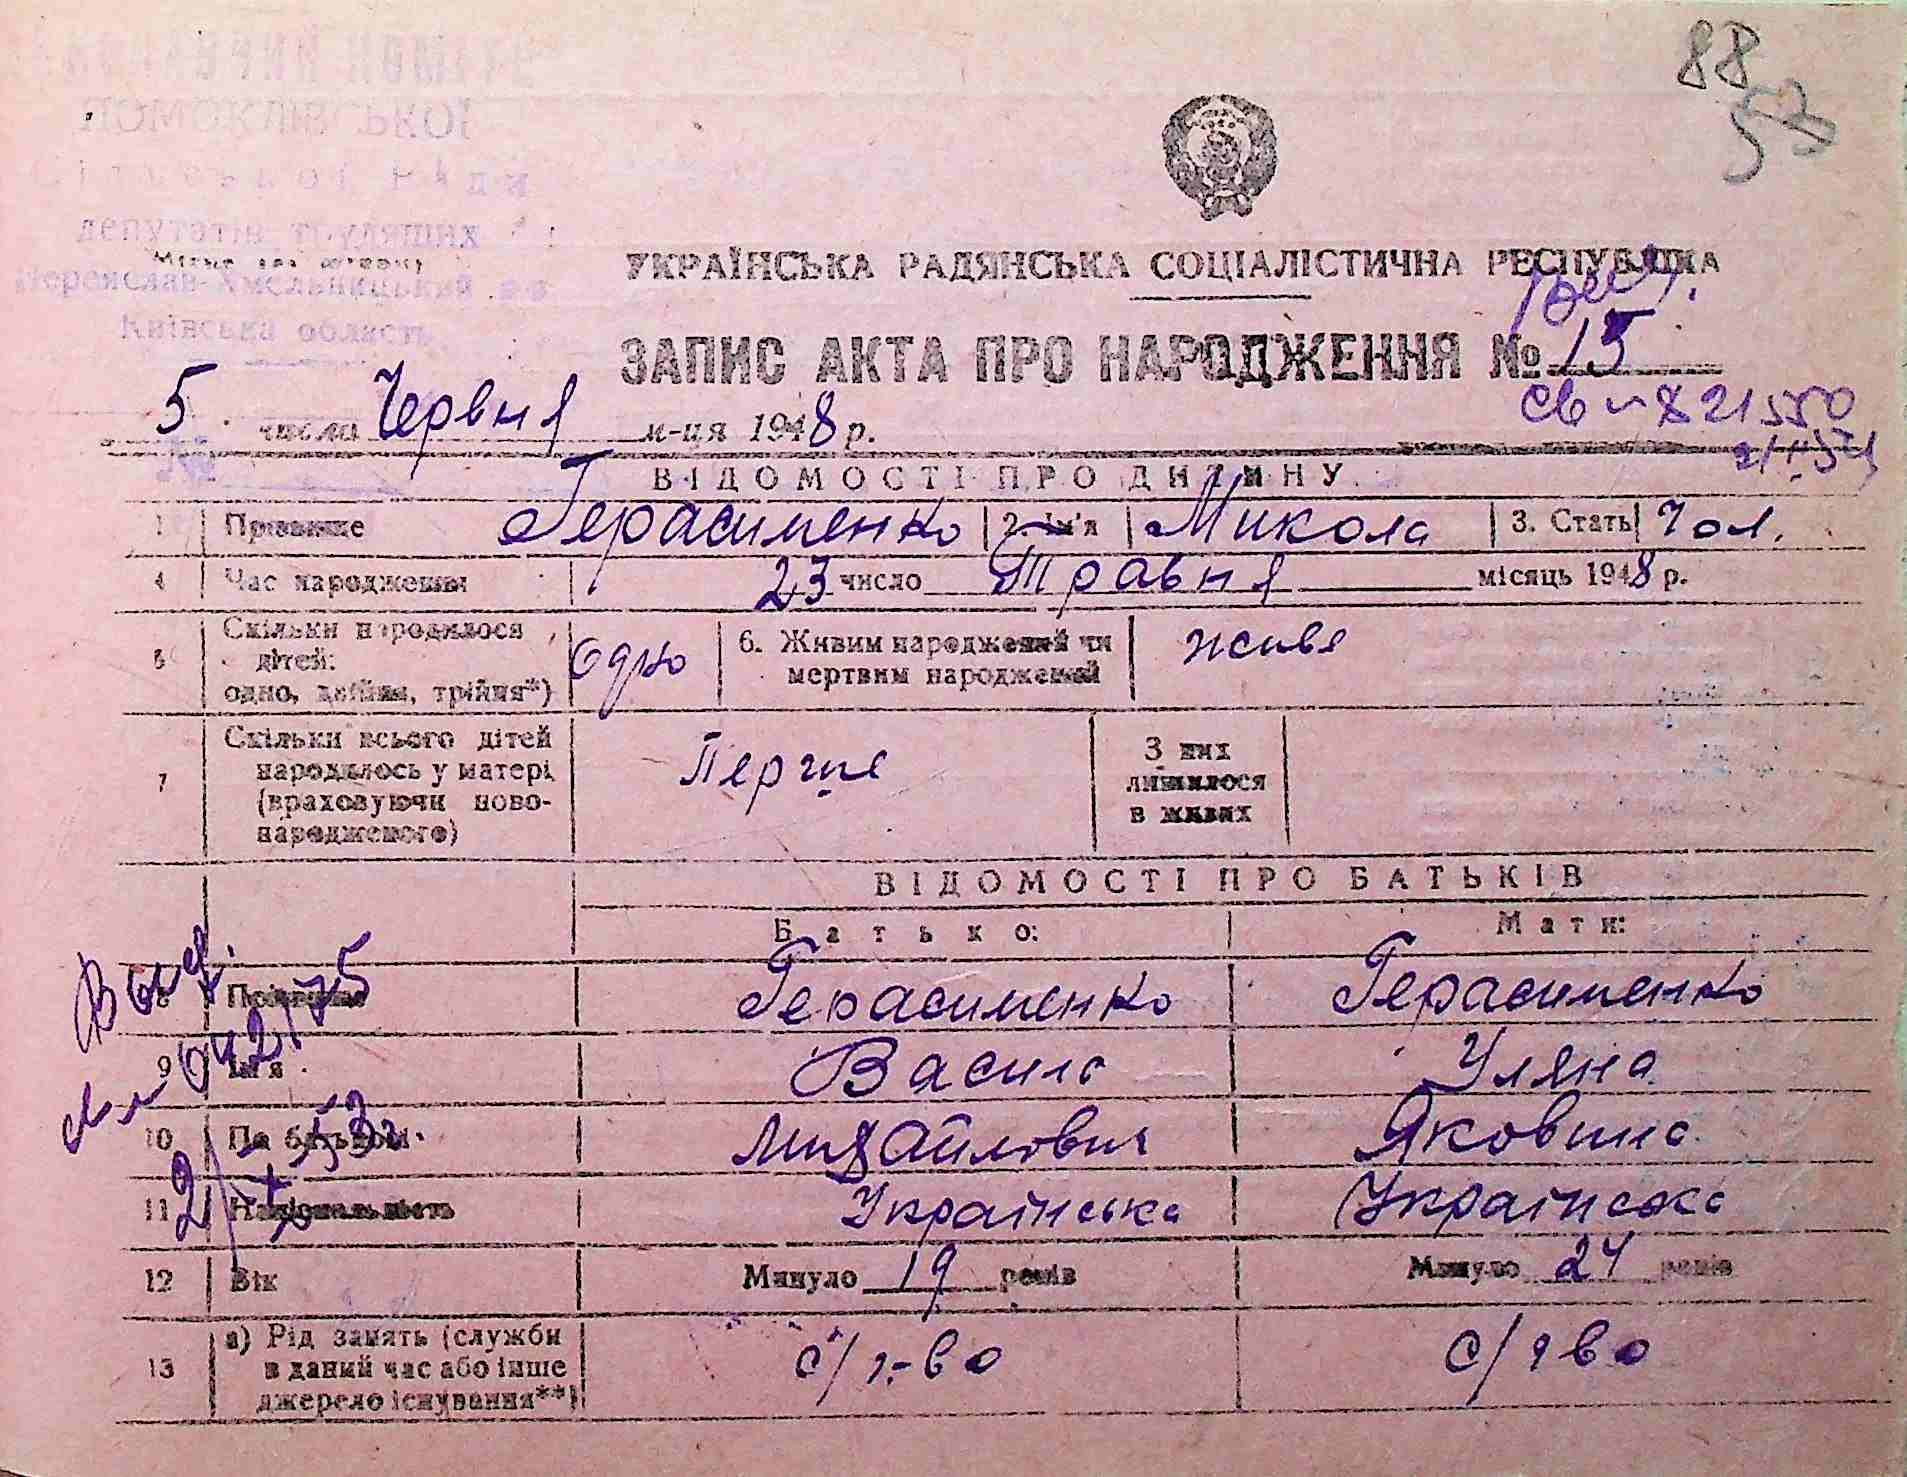 88
53
ПОМОКЛІВСЬКОЇ
Сільської Ради
депутатів трудящих
Переяслав-Хмельницький
Київська область
УКРАЇНСЬКА РАДЯНСЬКА СОЦІАЛІСТИЧНА РЕСПУБЛІКА
ЗАПИС АКТА ПРО НАРОДЖЕННЯ № 15
5 число Червня м-ця 1948 р.
ВІДОМОСТІ ПРО ДИТИНУ
1 Прізвище Герасименко 2. Ім'я Микола 3. Стать Чол.
4 Час народження 23 число Травня місяць 1948 р.
5 Скільки народилося дітей: одно, двійня, трійня*) Одно 6. Живим народжений чи мертвим народжений живе
7 Скільки всього дітей народилось у матері (враховуючи новонародженого) Перше З них лишилося в живих
ВІДОМОСТІ ПРО БАТЬКІВ
Батько: Мати:
8 Прізвище Герасименко Герасименко
9 Ім'я Василь Уляна
10 По батькові Михайлович Яковина
11 Національність Українська Українська
12 Вік Минуло 19 років Минуло 24 років
13 а) Рід занять (служби в даний час або інше джерело існування**) с/г-во с/г во